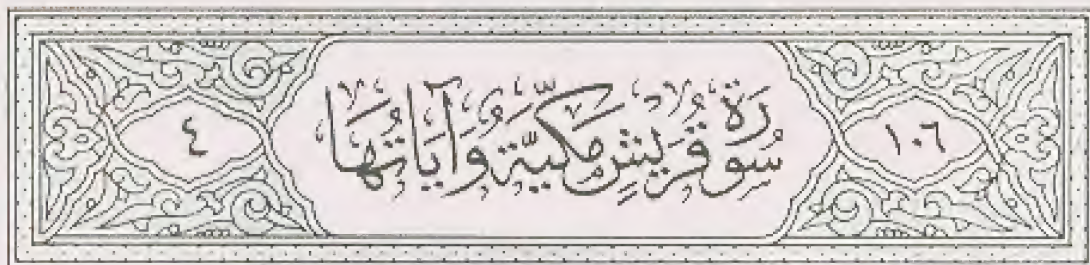 ١٠٦
سُورَةُ قُرَيْشٍ مَكِّيَّةٌ وَآيَاتُهَا
٤